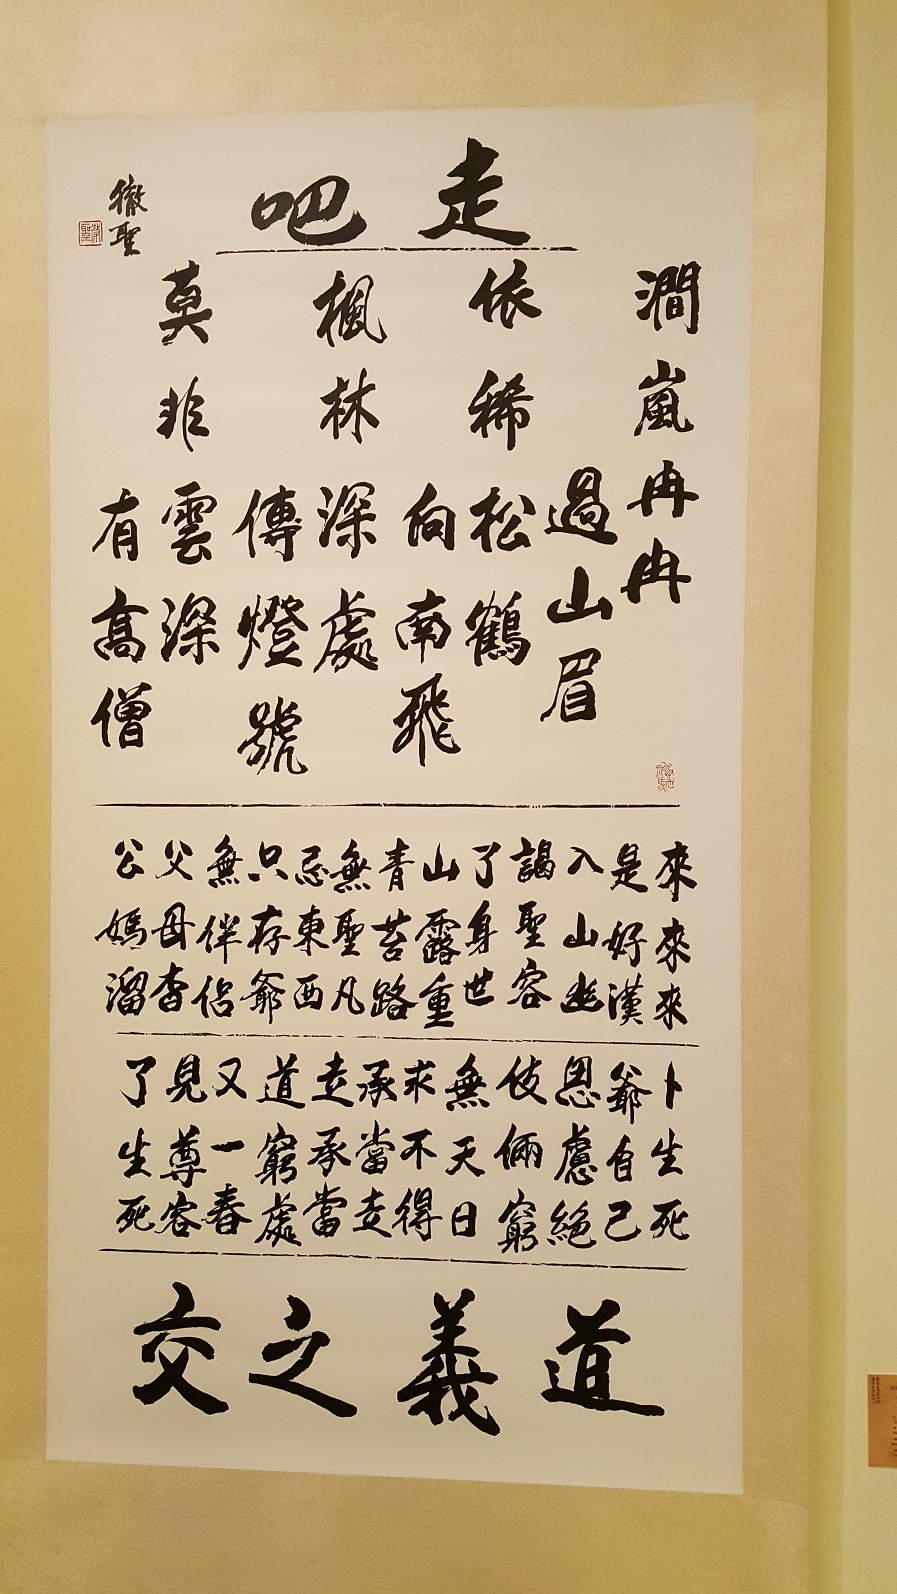 走吧
澗嵐冉冉
過山眉
依稀松鶴
向南飛
楓林深處
傳燈號
莫非雲深
有高僧
徹聖
來來來
是好漢
入山幽
謁聖容
了身世
山露重
青苔路
無聖凡
忌東西
只存爺
無伴侶
父母杳
公媽溜
卜生死
爺自己
思慮絕
伎倆窮
無天日
求不得
承當走
走承當
道窮處
又一春
見尊容
了生死
道義之交